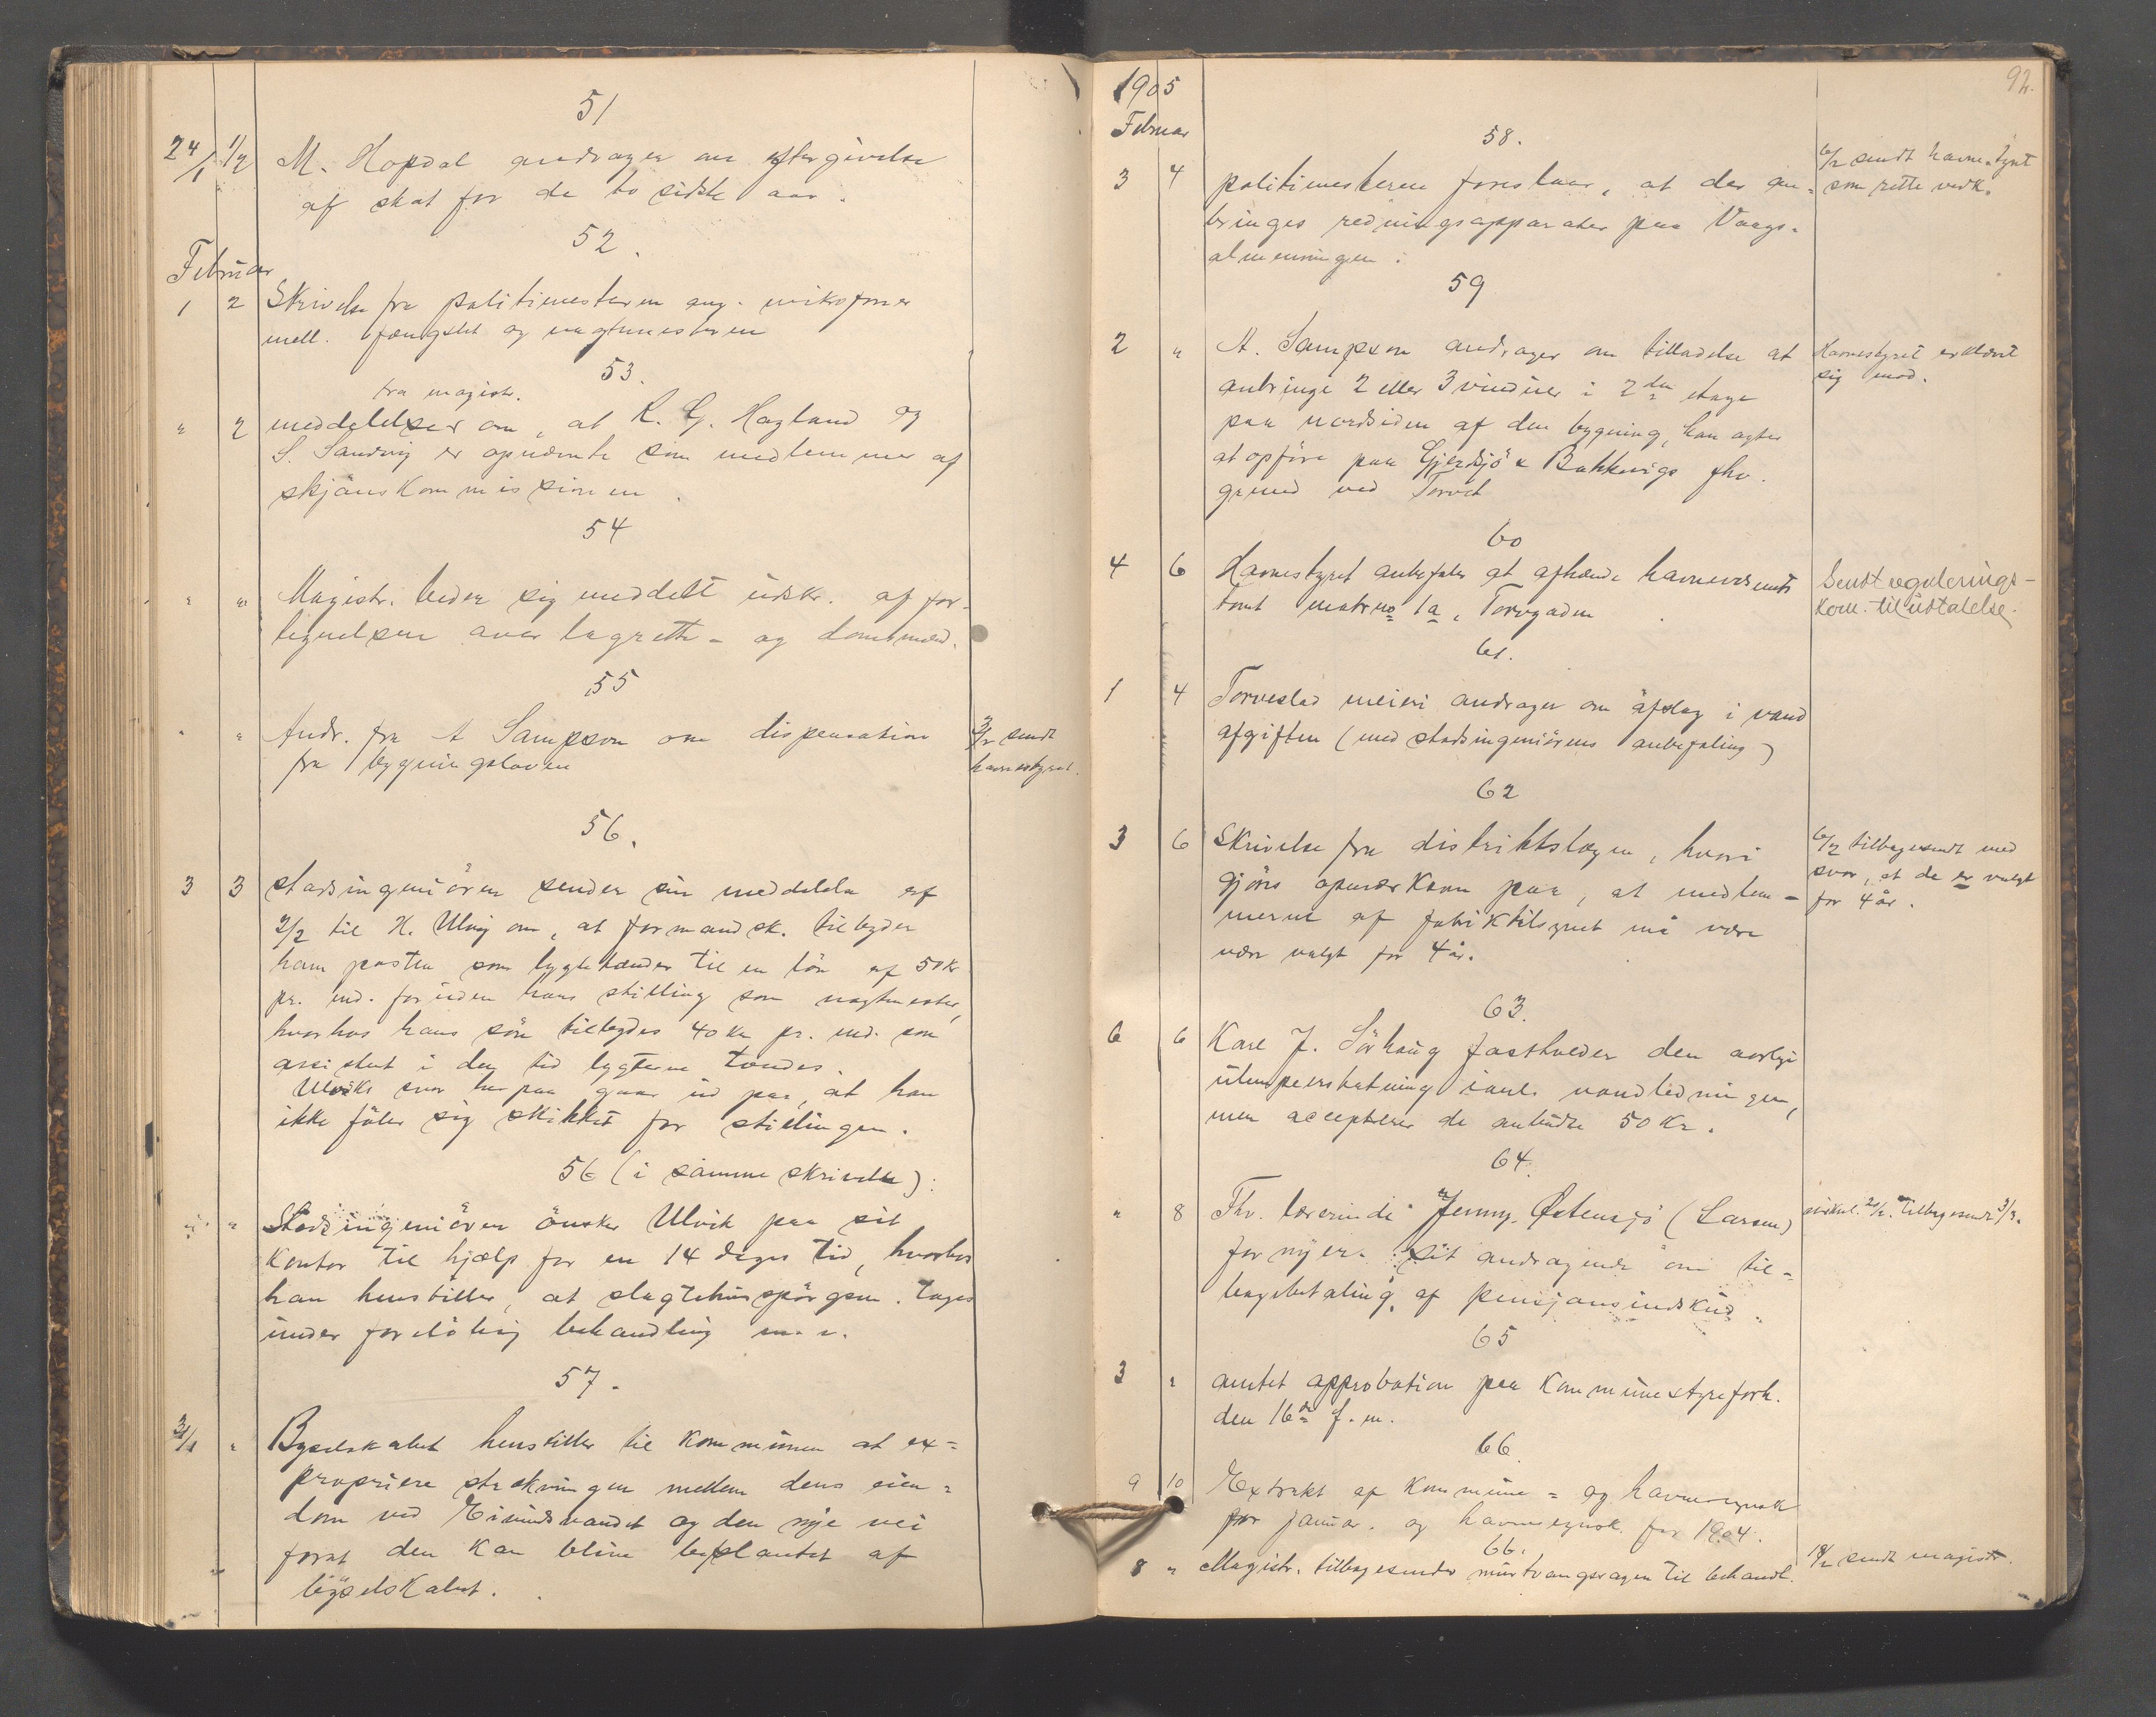 51
24/1 1/2 M. Hopdal andrager om eftergivelse
af skat for de to sidste aar.
52.
Februar
1 2 Skrivelse fra politimesteren ang. mikrofoner
mell. fængslet og vagtmesteren
53.
fra magistr.
" 2 meddelelser om, at R. G. Hagland og
S. Sandvig er opnævnte som medlemmer af
skjønskommissionen.
54
" " Magistr. beder sig meddelt udskr. af for-
lignelsen over lagrette- og domsmænd.
55
" " Andr. fra A Sampson om dispensation
fra bygningsloven
3/2 sendt
havnestyret.
56.
3 3 stadsingeniören sender sin meddelelse af
2/2 til H. Ulvig om, at formandsk. tilbyder
ham posten som lygtetænder til en lön af 50 kr
pr. md. foruden hans stilling som vagtmester,
hvorhos hans sön tilbydes 40 kr pr. md. som
assistent i den tid lygterne tændes.
Ulviks svar herpaa gaar ud paa, at han
ikke föler sig skikket for stillingen.
56 (i samme skrivelse):
" " Stadsingeniören önsker Ulvik paa sit
kontor til hjælp for en 14 dages tid, hvorhos
han henstiller, at slagtehusspörgsm. tages
under forelöbig behandling m. v.
57.
31/1 " Byselskabet henstiller til kommunen at ex=
propriere strækningen mellem dens eien=
dom ved Eivindsvandet og den nye vei
forat den kan blive beplantet af
byselskabet.
92.
1905
Februar
58.
3 4 politimesteren foreslaar, at der an=
bringes redningsapparater paa Vaags-
almenningen.
6/2 sendt havnestyret
som rette vedk.
59
2 " A. Sampson andrager om tilladelse at
anbringe 2 eller 3 vinduer i 2den etage
paa nordsiden af den bygning, han agter
at opföre paa Gjerdsjö & Bakkevigs fhv.
grund ved Torvet
Havnestyret erklært
sig mod.
60
4 6 Havnestyret anbefaler at afhænde havnevæsenets
tomt matrno 1a, Torvgaden
Sendt regulerings-
kom. til udtalelse.
61.
1 4 Torvestad meieri andrager om afslag i vand
afgiften (med stadsingeniörens anbefaling)
62
3 6 Skrivelse fra distriktslægen, hvori
gjöres opmærksom paa, at medlem-
merne af fabriktilsynet må være
være valgt for 4 år.
6/2 tilbagesendt med
svar, at de er valgt
for 4 år.
63.
6 6 Karl J. Sörhaug fastholder den aarlige
ulempeerstatning i anl. vandledningen,
men accepterer de anbudte 50 Kr.
64.
" 8 Fhv. lærerinde Jenny Østensjö (Larsen)
fornyer sit andragende om til=
bagebetaling af pensjonsindskud.
65
3 " amtet approbation paa kommunestyreforh.
den 16de f. m.
66.
9 10 Extrakt af kommune= og havneregnsk
for januar. og havneregnsk. for 1904.
66.
8 " Magistr. tilbagesender murtvangsagen til behandl.
18/2 sendt magistr.